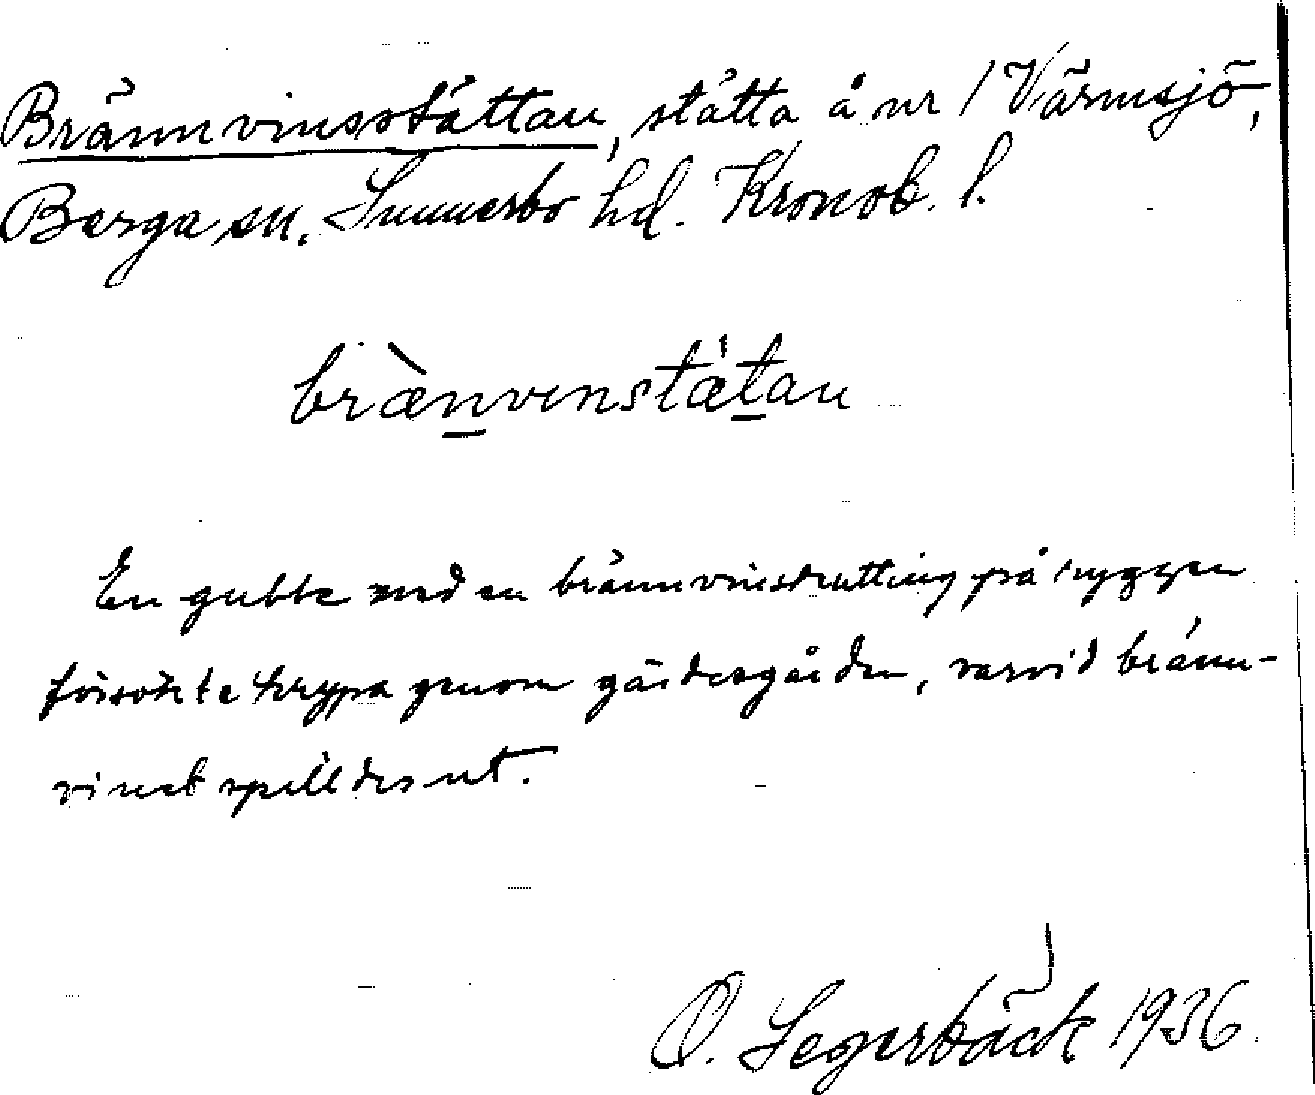 Brännvinsstättan, stätta å nr 1 Värmsjö,
Berga sn. Sunnerbo hd. Kronob. l.
brænvenstætan
En gubbe med en brännvinskutting på ryggen
försökte krypa genom gärdesgården, varvid bränn-
vinet spilldes ut.
O. Segerbäck 1936.